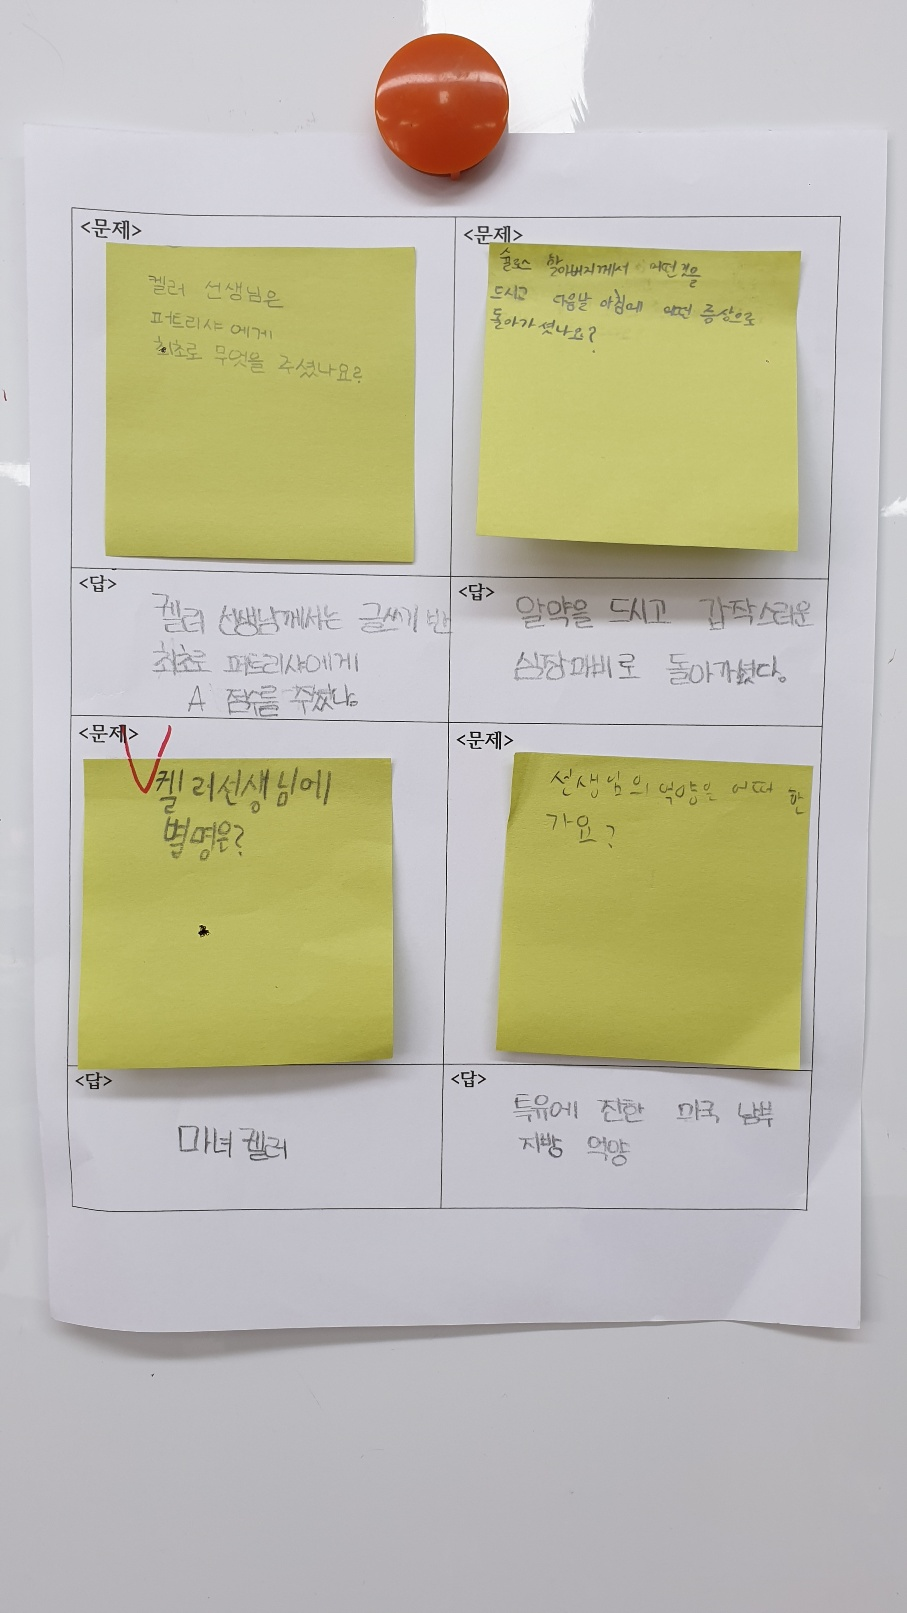 <문제>
켈러 선생님은
퍼트리샤에게
최초로 무엇을 주셨나요?
<답>
켈러 선생님께서는 글쓰기 반
최초로 퍼트리샤에게
A 점수를 주셨다.
<문제>
슐로스 할아버지께서 어떤것을
드시고 다음날 아침에 어떤 증상으로
돌아가셨나요?
<답>
알약을 드시고 갑작스러운
심장마비로 돌아가셨다.
<문제>
켈러선생님에
별명은?
<답>
마녀 켈러
<문제>
선생님의 억양은 어떠 한
가요?
<답>
특유에 진한 미국 남부
지방 억양